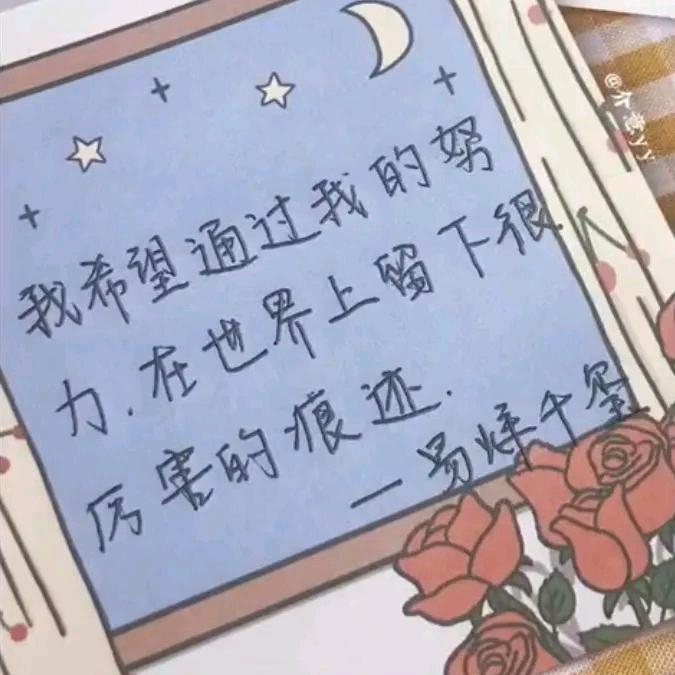 我希望通过我的努
力.在世界上留下很
厉害的痕迹.
—易烊千玺
@介意yy